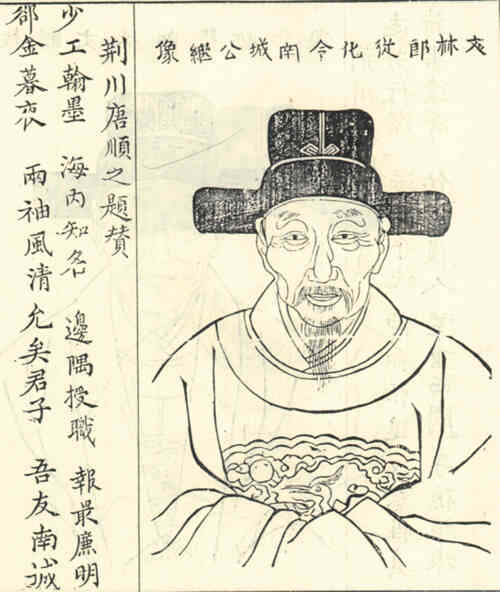 文林郎從化令南城公繼像
荆川唐順之題贊
少工翰墨 海内知名 邊隅授職 報最廉明
郤金暮夜 兩袖風清 允矣君子 吾友南誠